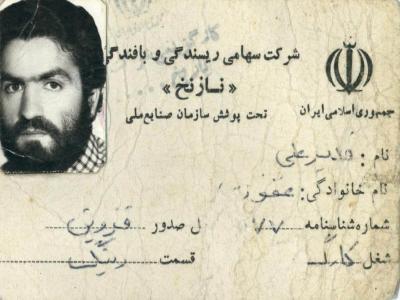 شرکت سهامی ریسندگی و بافندگی
« نازنخ »
تحت پوشش سازمان صنایع ملی
جمهوری اسلامی ایران
نام : قدیرعلی
نام خانوادگی :
شماره شناسنامه ۷۷ ل صدور قزوین
شغل کارگر قسمت رینگ